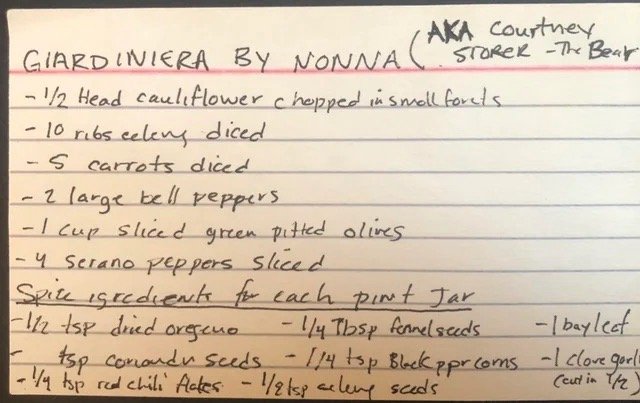 GIARDINIERA BY NONNA (AKA Courtney
STORER - The Bear
- 1/2 Head cauliflower chopped in small forets
- 10 ribs celeny diced
- 5 carrots diced
- 2 large bell peppers
- 1 cup sliced green pitted olives
- 4 serano peppers sliced
Spice igredients for each pint Jar
- 1/2 tsp dried oregeno - 1/4 Tbsp fennel seeds - 1 bay leaf
- tsp coriandr seeds - 1/4 tsp Black pprcorns - 1 clove garl
- 1/4 tsp red chili flakes - 1/2 tsp celeny seeds (cut in 1/2)